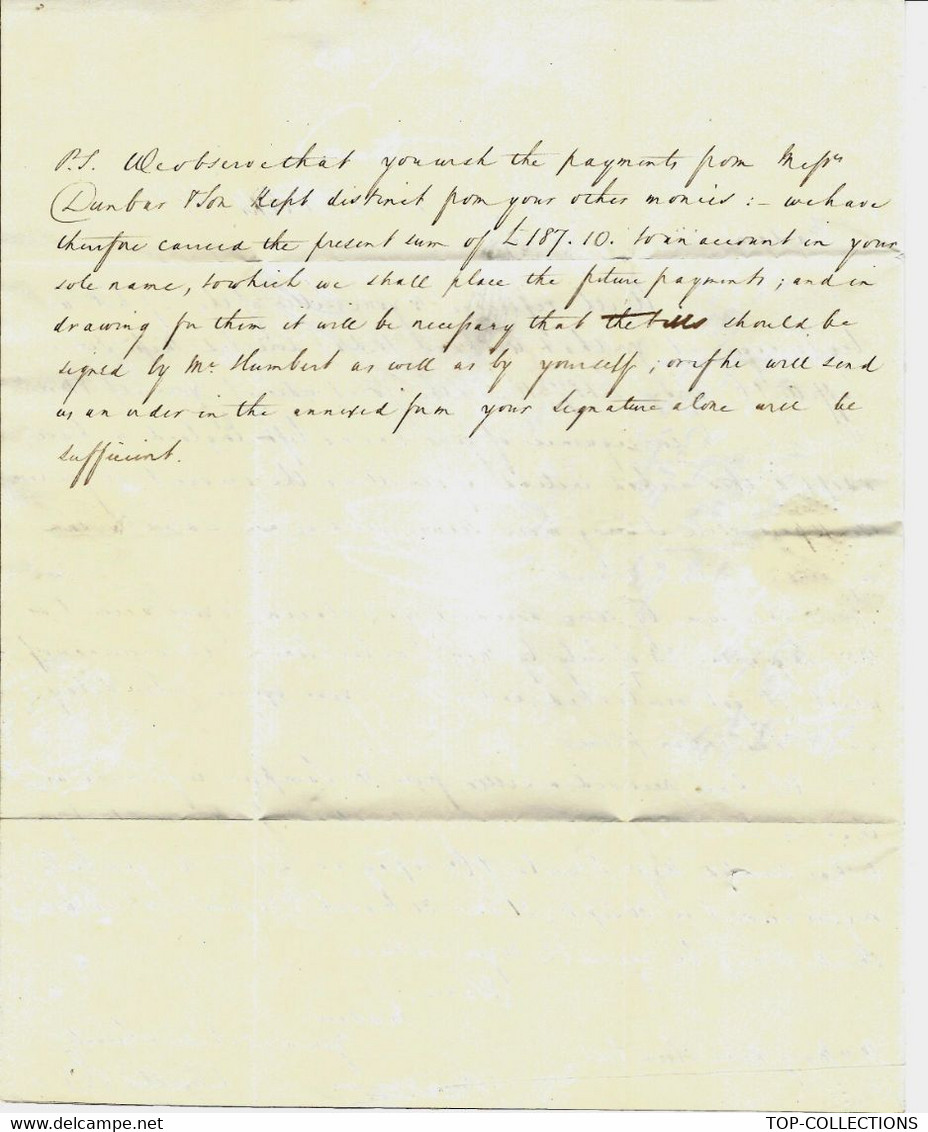 P.S. We observe that you wish the payments from Messrs
Dunbar & Son Kept distinct from your other monies :- we have
therefore carried the present sum of £187.10. to an account in your
sole name, to which we shall place the future payments ; and in
drawing for them it will be necessary that the bills should be
signed by Mr. Humbert as well as by yourself ; or if he will send
us an order in the annexed form your signature alone will be
sufficient.
TOP-COLLECTIONS